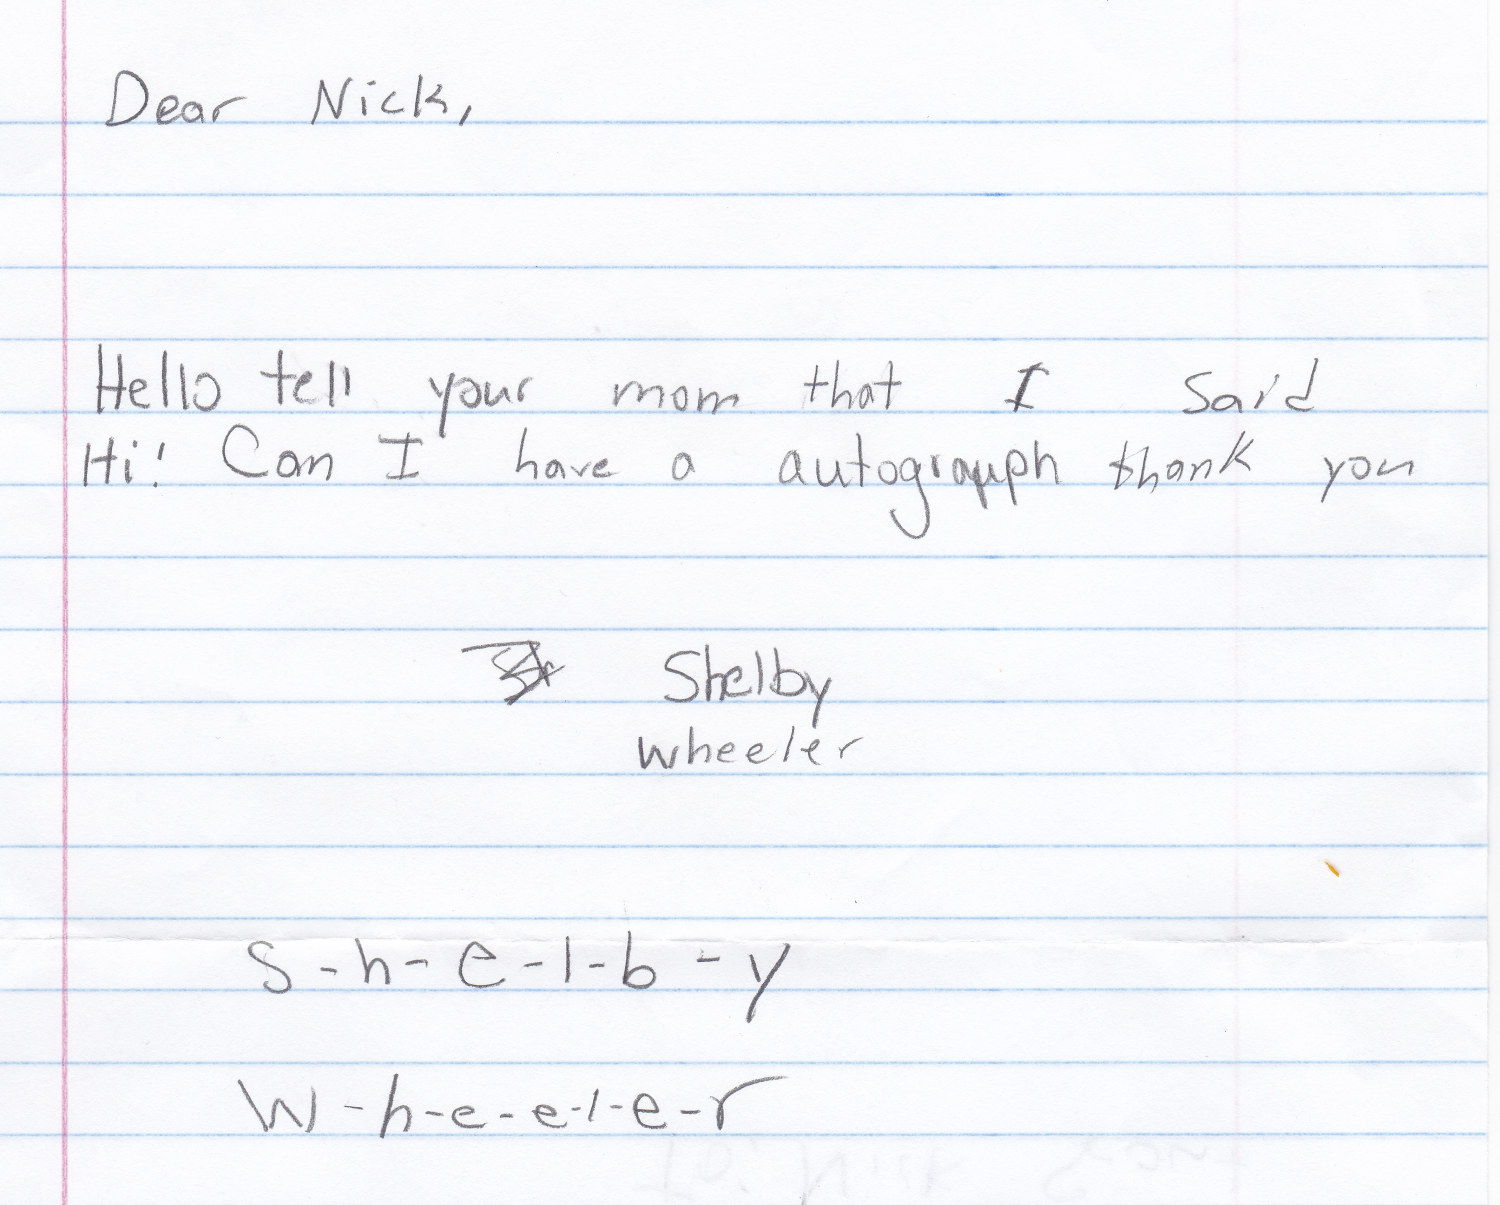 Dear Nick,
Hello tell your mom that I Said
Hi! Can I have a autograph thank you
Shelby
Wheeler
S-h-e-l-b-y
W-h-e-e-l-e-r